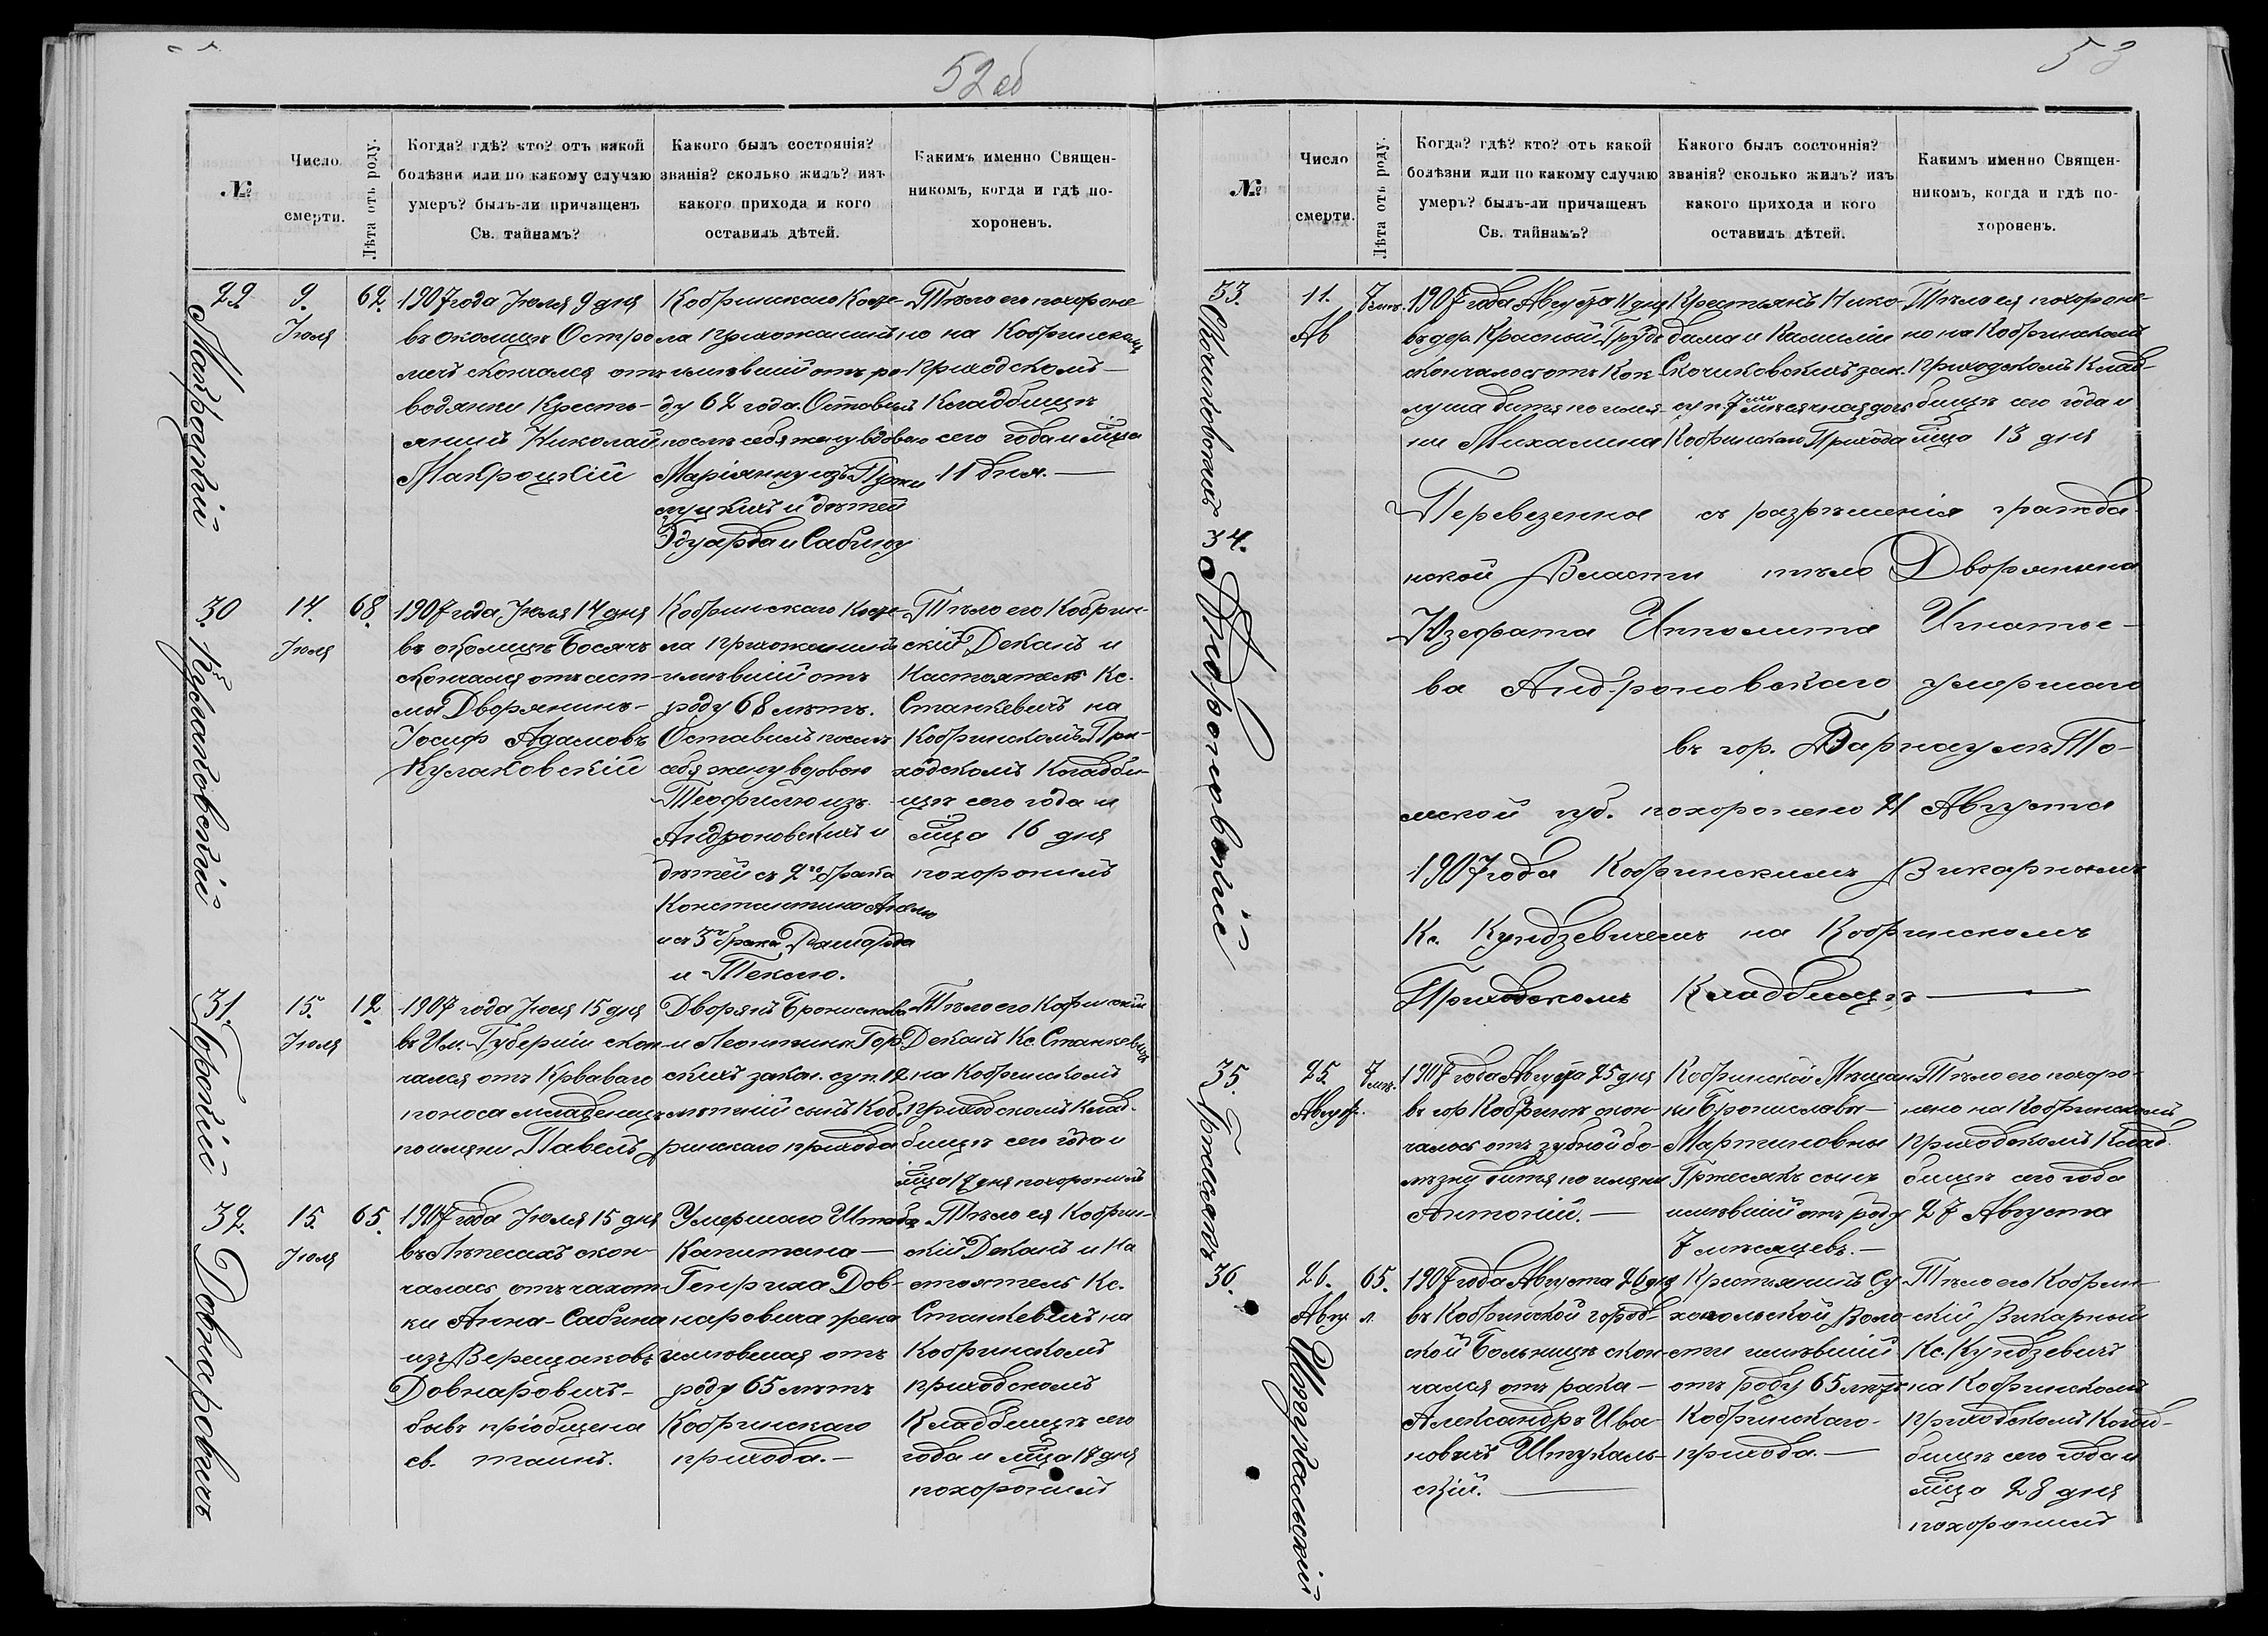 52 об
№
Число
смерти.
Лѣта отъ роду.
Когда? гдѣ? кто? отъ какой
болѣзни или по какому случаю
умеръ? былъ-ли причащенъ
Св. тайнамъ?
Какого былъ состоянія?
званія? сколько жилъ? изъ
какого прихода и кого
оставилъ дѣтей.
Какимъ именно Священ-
никомъ, когда и гдѣ по-
хороненъ.
29
9.
Іюля
62
1907 года Іюля 9 дня
въ околицѣ Остро
мечъ скончался отъ
водянки Кресть-
янинъ Николай
Макроцкій
Кобринскаго Косте-
ла прихожанинъ
имѣвшій отъ ро-
ду 62 года. Оставилъ
послѣ себя жену вдовою
Маріянну изъ
и дѣтей
Эдуарда и Сабину
Тѣло его похороне
но на Кобринскомъ
Приходскомъ
Кладбищѣ
сего года и мѣца
11 дня.
Макроцкій
30
14.
Іюля
68.
1907 года Іюля 14 дня
въ околицѣ Босячъ
скончался отъ аст-
мы Дворянинъ
Іосифъ Адамовъ
Кулаковскій
Кобринскаго Косте-
ла прихожанинъ
имѣвшій отъ
роду 68 лѣтъ.
Оставилъ послѣ
себя жену вдовою
Теофилю изъ
Андроновскихъ и
дѣтей съ 2го брака
Константина
и съ 3го брака
и Теклю.
Тѣло его Кобрин-
скій Деканъ и
Настоятель Кс.
Станкевичъ на
Кобринскомъ При-
ходскомъ Кладби-
щѣ сего года и
мѣца 16 дня
похоронилъ
Кулаковскій
31.
15.
Іюля
12
1907 года Іюля 15 дня
въ Им. Губерніи скон-
чался отъ Крваваго
поноса младенецъ
по имени Павелъ
Дворянъ Бронислава
и Леонтины Гор
скихъ закон. суп. 12
лѣтній сынъ Коб.
ринскаго прихода
Тѣло его Кобринскій
Деканъ Кс. Станкевичъ
на Кобринскомъ
приходскомъ Клад-
бищѣ сего года и
мѣца 17 дня похоронилъ
Горскій
32.
15.
Іюля
65.
1907 года Іюля 15 дня
въ Лѣпесахъ скон-
чалась отъ чахот-
ки Анна-Сабина
изъ Верещаковъ
Довнаровичъ-
бывъ пріобщена
св. таинъ.
Умершаго Штабъ
Капитана
Генриха Дов-
наровича жена
имѣвшая отъ
роду 65 лѣтъ
Кобринскаго
прихода.
Тѣло ея Кобрин-
скій Деканъ и На
стоятель Кс.
Станкевичъ на
Кобринскомъ
приходскомъ
Кладбищѣ сего
года и мѣца 18 дня
похоронилъ
Довнаровичъ
53
№
Число
смерти.
Лѣта отъ роду.
Когда? гдѣ? кто? отъ какой
болѣзни или по какому случаю
умеръ? былъ-ли причащенъ
Св. тайнамъ?
Какого былъ состоянія?
званія? сколько жилъ? изъ
какого прихода и кого
оставилъ дѣтей.
Какимъ именно Священ-
никомъ, когда и гдѣ по-
хороненъ.
33.
11.
Ав
7 мѣс.
1907 года Августа 11 дня
въ дер. Красный Грудъ
скончалось отъ Кок-
луша дитя по имя-
ни Михалина
Крестьянъ Нико-
дима и Камиліи
Скочиковскихъ зак.
суп. 7ми мѣсячная дочь
Кобринскаго Прихода
Тѣло ея похороне-
но на Кобринскомъ
Приходскомъ Клад-
бищѣ сего года и
мѣца 13 дня
34.
Перевезенное съ разрѣшенія гражда-
нской Власти тѣло Дворянина
Юзефата Ипполита Игнатье-
ва Андроновскаго умершаго
въ гор. Барнаулѣ То-
мской губ. похоронено 21 Августа
1907 года Кобринскимъ Викарнымъ
Кс. Кундзевичемъ на Кобринскомъ
Приходскомъ Кладбищѣ
Андроновскій
35.
25.
Август.
7 мѣс.
1907 года Августа 25 дня
въ гор. Кобринѣ скон-
чалось отъ зубной бо-
лѣзни дитя по имени
Антоній.
Кобринской Мѣщан
ки Брониславы
Мартиновны
Гржесякъ сынъ
имѣвшій отъ роду
7 мѣсяцевъ.
Тѣло его похоро-
нено на Кобринскомъ
приходскомъ Клад-
бищѣ сего года
27 Августа
Гржесякъ
36.
26.
Авгу
65.
л.
1907 года Августа 26 дня
въ Кобринской город-
ской Больницѣ скон-
чался отъ рака
Александръ Ива-
новичъ Штукаль-
скій.
Крестьянинъ Су-
хопольской Воло-
сти имѣвшій
отъ роду 65 лѣтъ
Кобринскаго
прихода.
Тѣло его Кобрин-
скій Викарный
Кс. Кундзевичъ
на Кобринскомъ
приходскомъ Клад-
бищѣ сего года и
мѣца 28 дня
похоронилъ
Штукальскій